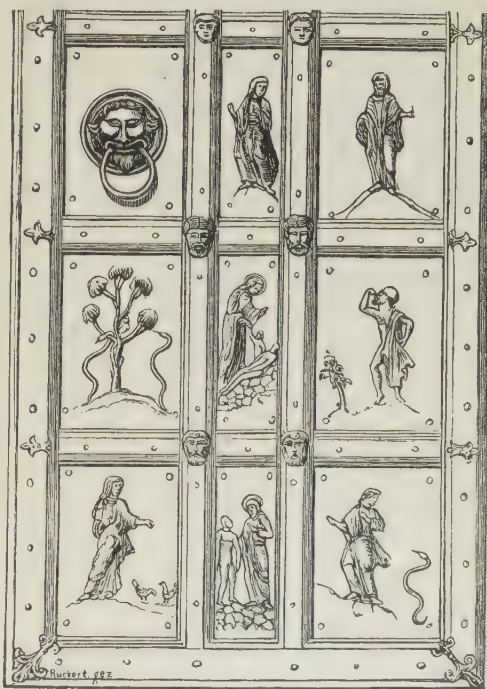 Ruckert. gez